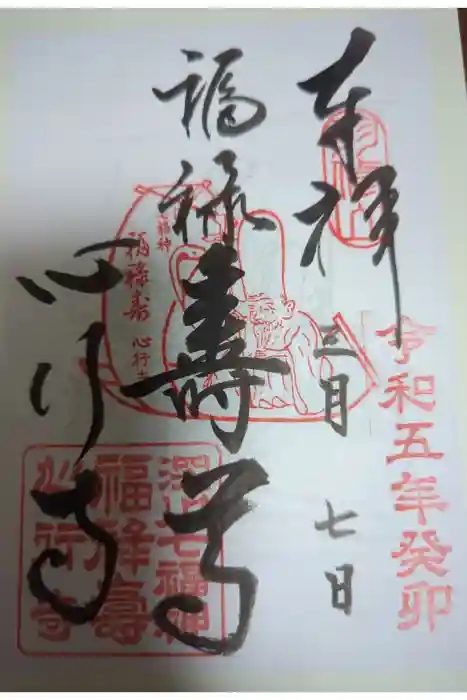 奉拝
令和五年癸卯
三月 七日
福禄壽尊
福神
福禄寿
心行寺
心行寺
深川七福神
福禄壽
心行寺